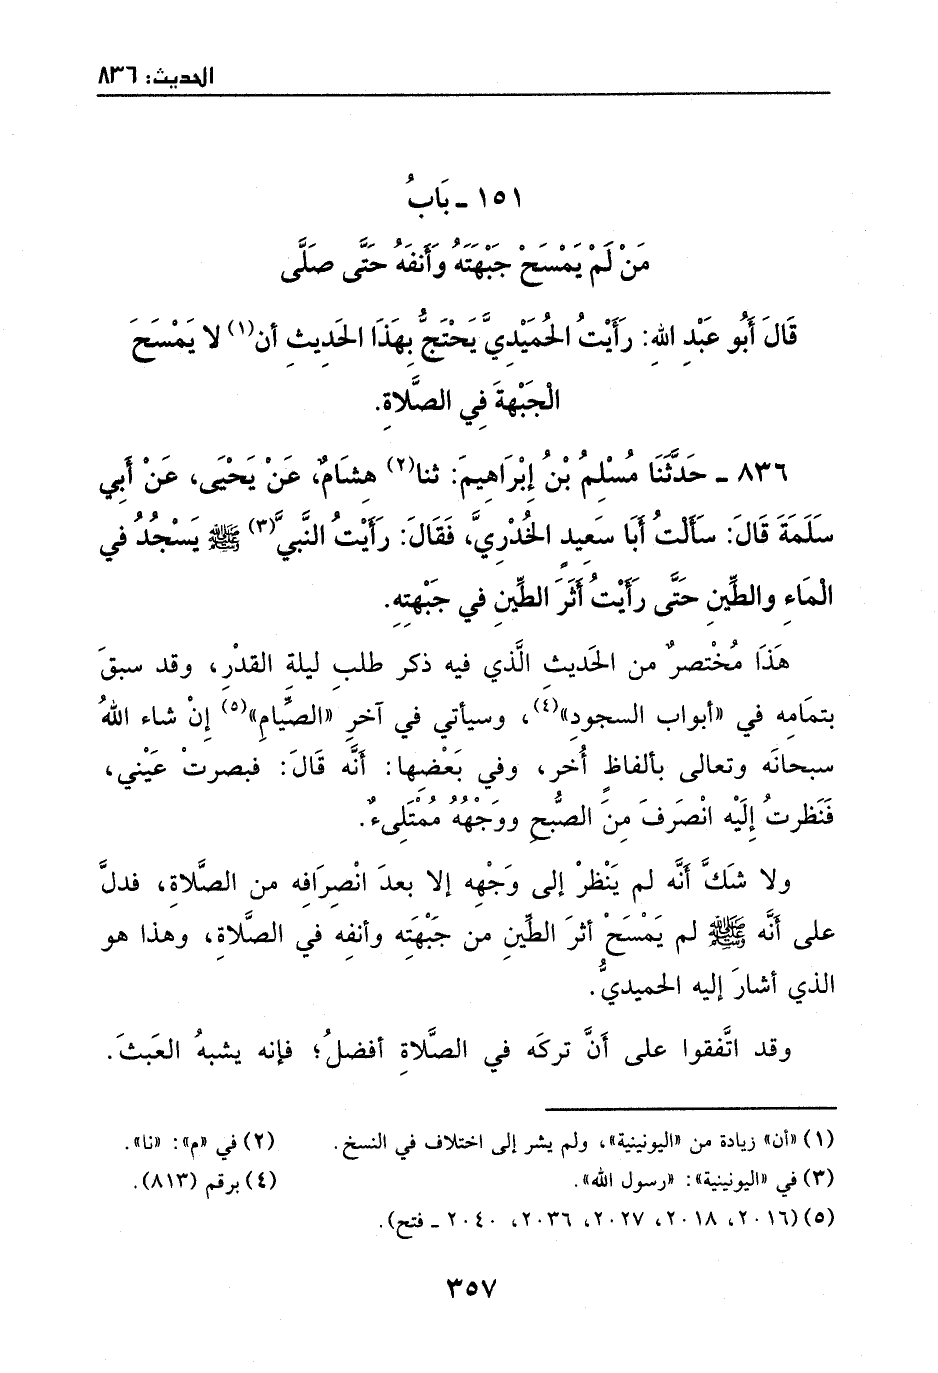 الحديث: ٨٣٦
١٥١ - بَابُ
مَنْ لَمْ يَمْسَحْ جَبْهَتَهُ وَأَنفَهُ حَتَّى صَلَّى
قَالَ أَبُو عَبْدِ اللهِ: رَأَيْتُ الحُمَيْدِيَّ يَحْتَجُّ بِهَذَا الحَدِيثِ أن(١) لا يَمْسَحَ
الْجَبْهةَ فِي الصَّلاةِ.
٨٣٦ - حَدَّثَنَا مُسْلِمُ بْنُ إِبْرَاهِيمَ: ثنا(٢) هِشَامٌ، عَنْ يَحْيَى، عَنْ أَبِي
سَلَمَةَ قَالَ: سَأَلْتُ أَبَا سَعِيدٍ الخُدْرِيَّ، فَقَالَ: رَأَيْتُ النَّبِيَّ(٣) ﷺ يَسْجُدُ فِي
الْمَاءِ والطِّينِ حَتَّى رَأَيْتُ أَثَرَ الطِّينِ فِي جَبْهتِهِ.
هَذَا مُخْتصرٌ من الحَديثِ الَّذي فيه ذكر طلبِ ليلةِ القدْرِ، وقد سبقَ
بتمَامِه في «أبواب السجودِ»(٤)، وسيأتي في آخرِ «الصِّيامِ»(٥) إنْ شاء اللهُ
سبحانَه وتعالى بألفاظٍ أُخر، وفي بَعْضِها: أنَّه قَالَ: فبصرتْ عَيْني،
فَنَظرتُ إِلَيْه انْصَرَفَ مِنَ الصُّبحِ ووَجْهُهُ مُمْتَلِىءٌ.
ولا شَكَّ أنَّه لم يَنْظرْ إلى وَجْهِه إلا بعدَ انْصِرَافِه من الصَّلاةِ، فدلَّ
على أنَّه ﷺ لم يَمْسَحْ أثرَ الطِّينِ من جَبْهَتِه وأنفِه في الصَّلاةِ، وهذا هو
الذي أشارَ إليه الحميديُّ.
وقد اتَّفقوا على أنَّ تركَه في الصَّلاةِ أفضلُ؛ فإنه يشبهُ العَبثَ.
(١) «أن» زيادة من «اليونينية»، ولم يشر إلى اختلاف في النسخ. (٢) في «م»: «نا».
(٣) في «اليونينية»: «رسول الله». (٤) برقم (٨١٣).
(٥) (٢٠١٦، ٢٠١٨، ٢٠٢٧، ٢٠٣٦، ٢٠٤٠ - فتح).
٣٥٧